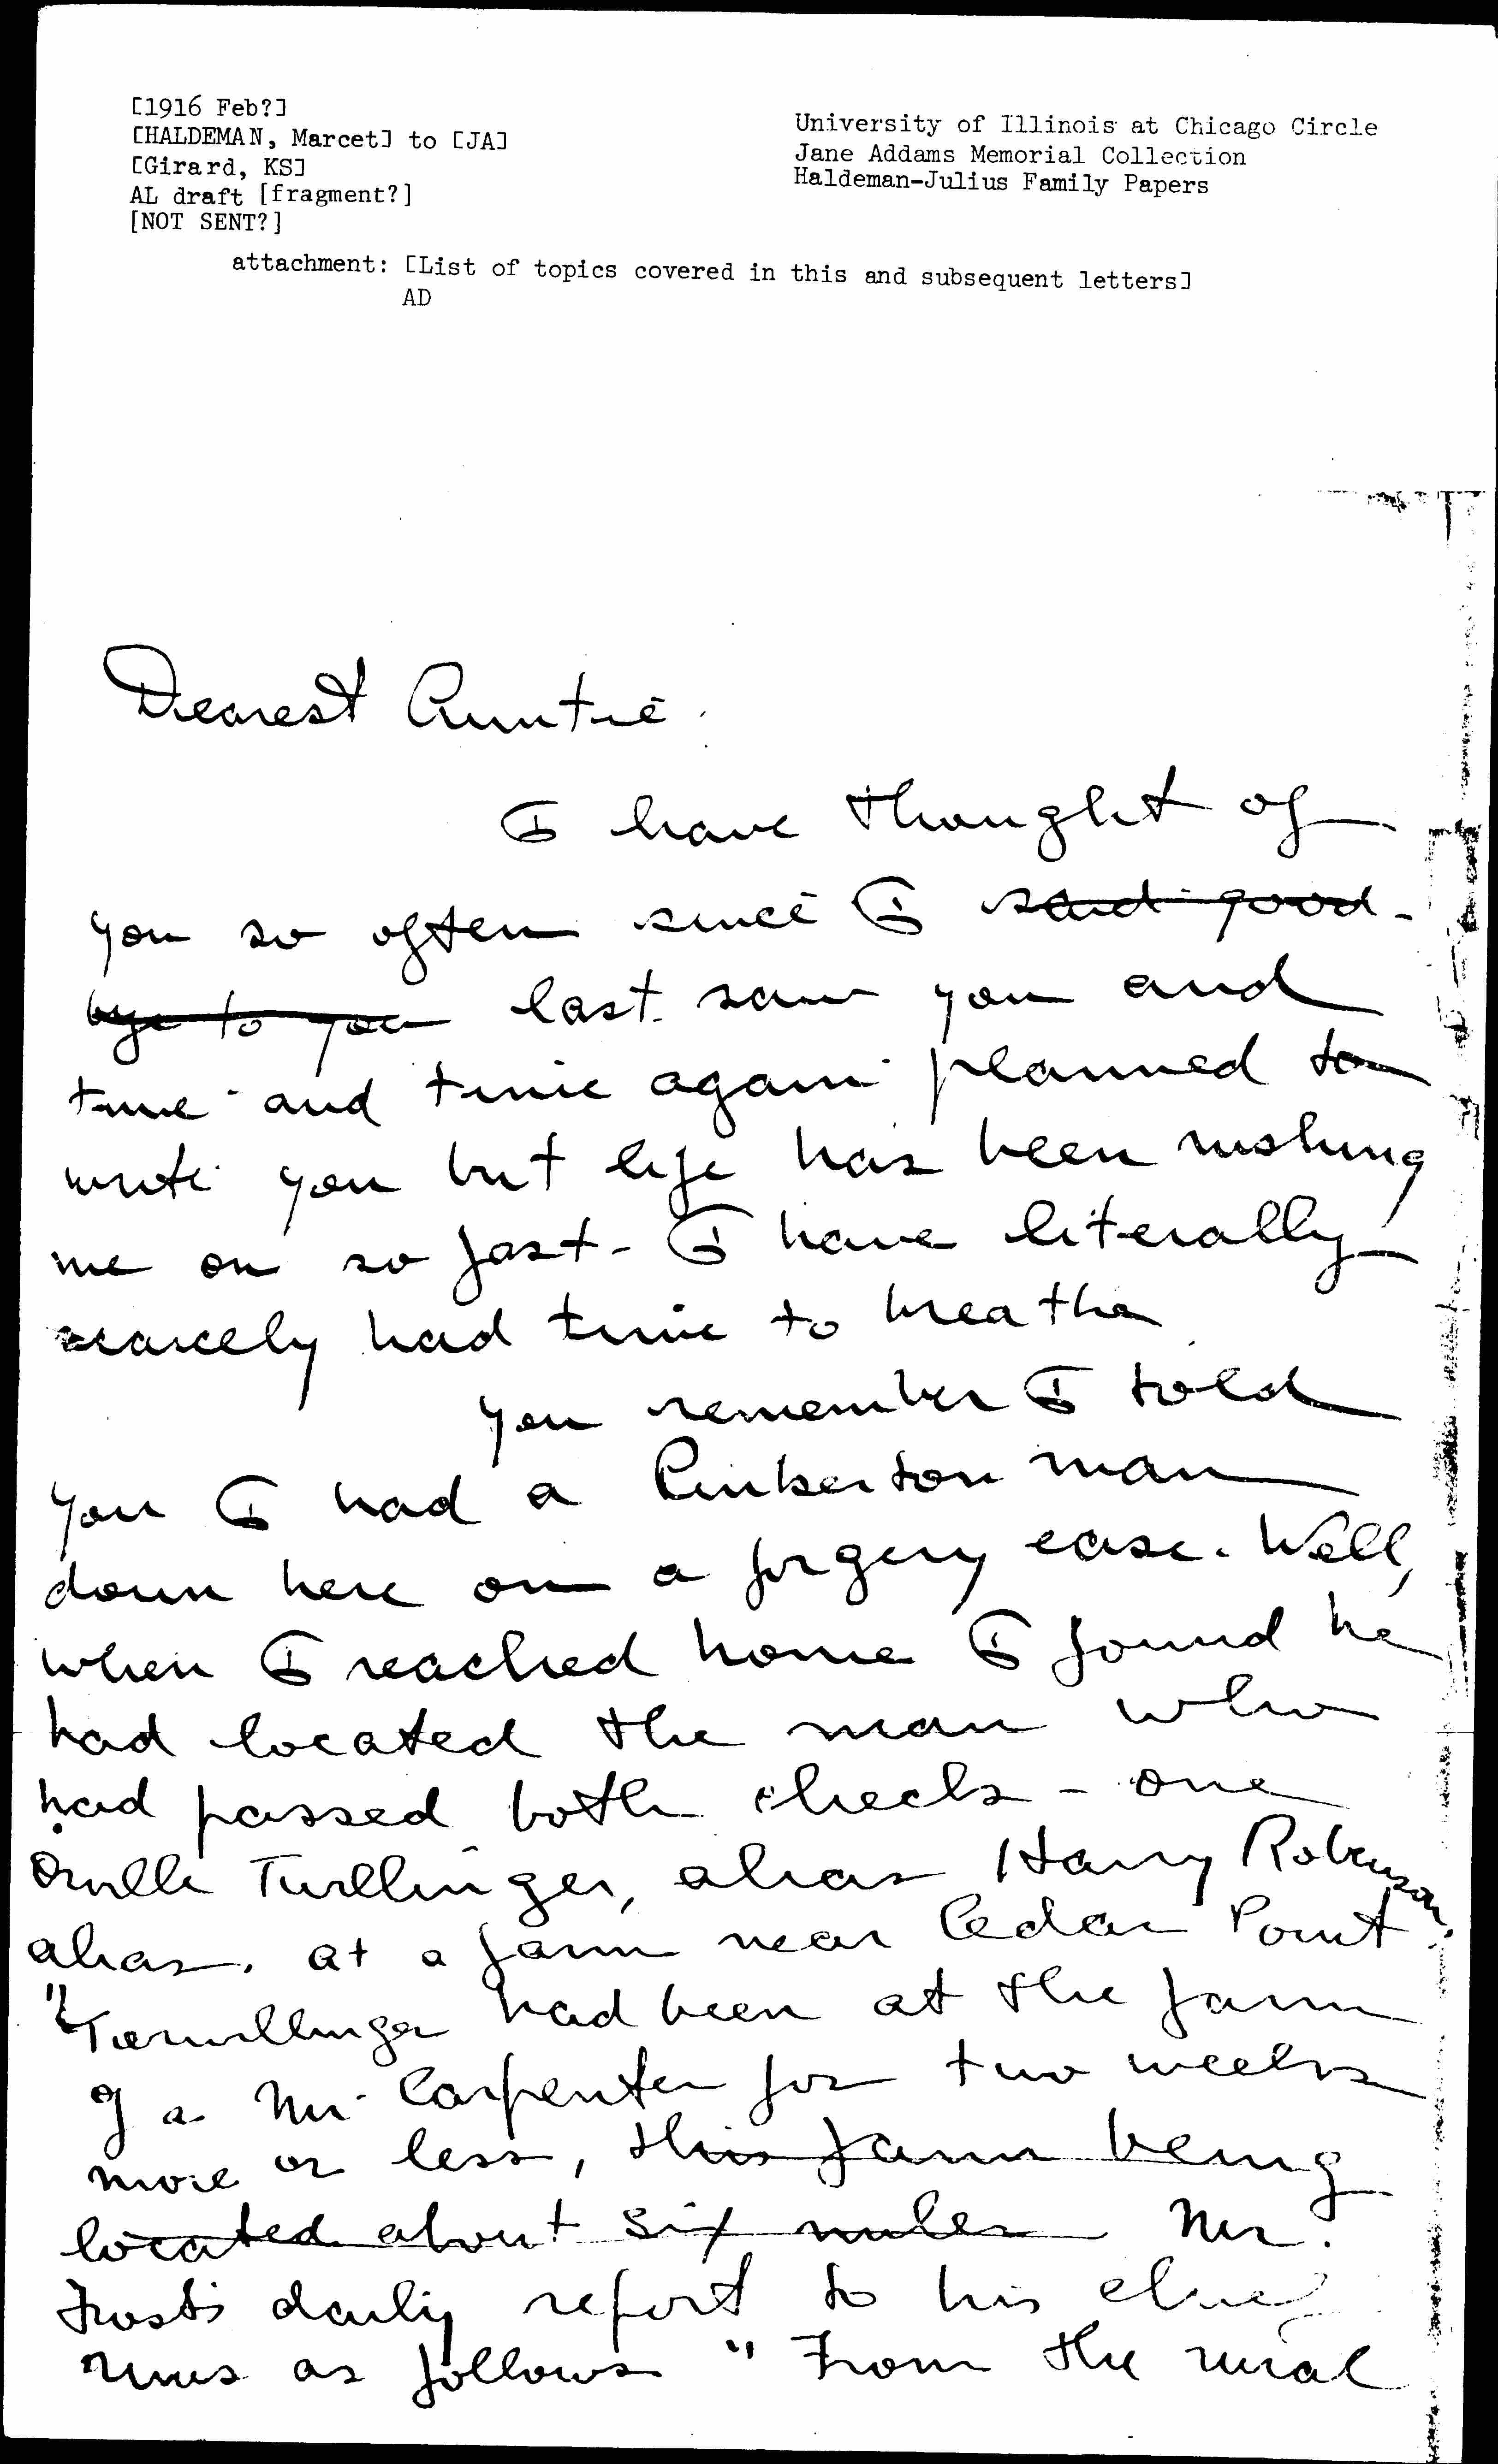 [1916 Feb?]
[HALDEMAN, Marcet] to [JA]
[Girard, KS]
AL draft [fragment?]
[NOT SENT?]
attachment: [List of topics covered in this and subsequent letters]
AD
University of Illinois at Chicago Circle
Jane Addams Memorial Collection
Haldeman-Julius Family Papers
Dearest Auntie.
I have thought of
you so often since I said good-
bye to you last saw you and
time and time again planned to
write you but life has been rushing
me on so fast - I have literally
scarcely had time to breathe
You remember I told
you I had a Pinkerton man
down here on a forgery case. Well,
when I reached home I found he
had located the man who
had passed both checks - one
Orville Turllinger, alias Harry Robinson,
alias. at a farm near Cedar Point.
"Terwillinger had been at the farm
of a Mr. Carpenter for two weeks
more or less, this farm being
located about six miles Mr.
Frost's daily report to his chief
runs as follows " From the rural